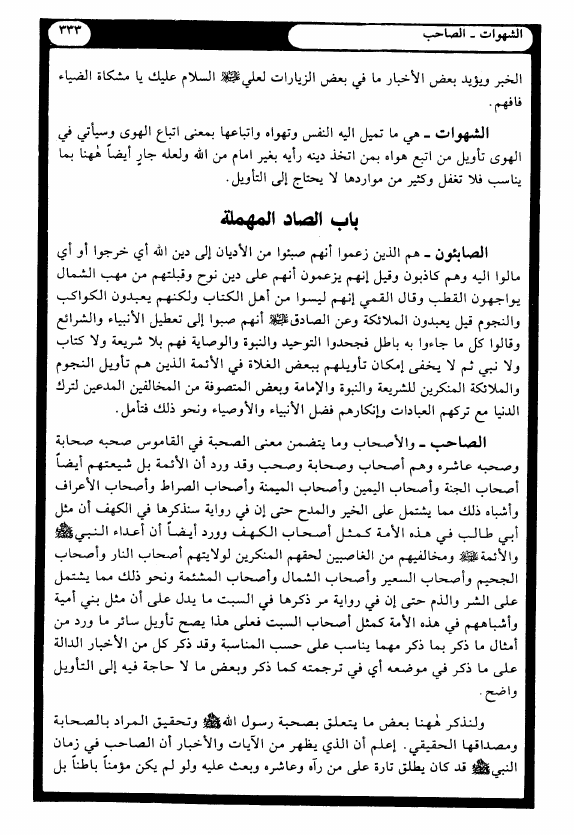 الشهوات ـ الصاحب
٣٣٣
الخبر ويؤيد بعض الأخبار ما في بعض الزيارات لعلي ﷺ السلام عليك يا مشكاة الضياء
فافهم.
الشهوات ـ هي ما تميل اليه النفس وتهواه واتباعها بمعنى اتباع الهوى وسيأتي في
الهوى تأويل من اتبع هواه بمن اتخذ دينه رأيه بغير امام من الله ولعله جارٍ أيضاً هٰهنا بما
يناسب فلا تغفل وكثير من مواردها لا يحتاج إلى التأويل.
باب الصاد المهملة
الصابئون ـ هم الذين زعموا أنهم صبئوا من الأديان إلى دين الله أي خرجوا أو أي
مالوا اليه وهم كاذبون وقيل إنهم يزعمون أنهم على دين نوح وقبلتهم من مهب الشمال
يواجهون القطب وقال القمي إنهم ليسوا من أهل الكتاب ولكنهم يعبدون الكواكب
والنجوم قيل يعبدون الملائكة وعن الصادق ﷺ أنهم صبوا إلى تعطيل الأنبياء والشرائع
وقالوا كل ما جاءوا به باطل فجحدوا التوحيد والنبوة والوصاية فهم بلا شريعة ولا كتاب
ولا نبي ثم لا يخفى إمكان تأويلهم ببعض الغلاة في الأئمة الذين هم تأويل النجوم
والملائكة المنكرين للشريعة والنبوة والإمامة وبعض المتصوفة من المخالفين المدعين لترك
الدنيا مع تركهم العبادات وإنكارهم فضل الأنبياء والأوصياء ونحو ذلك فتأمل.
الصاحب ـ والأصحاب وما يتضمن معنى الصحبة في القاموس صحبه صحابة
وصحبه عاشره وهم أصحاب وصحابة وصحب وقد ورد أن الأئمة بل شيعتهم أيضاً
أصحاب الجنة وأصحاب اليمين وأصحاب الميمنة وأصحاب الصراط وأصحاب الأعراف
وأشباه ذلك مما يشتمل على الخير والمدح حتى إن في رواية سنذكرها في الكهف أن مثل
أبي طالب في هذه الأمة كمثل أصحاب الكهف وورد أيضاً أن أعداء النبي ﷺ
والأئمة ﷺ ومخالفيهم من الغاصبين لحقهم المنكرين لولايتهم أصحاب النار وأصحاب
الجحيم وأصحاب السعير وأصحاب الشمال وأصحاب المشئمة ونحو ذلك مما يشتمل
على الشر والذم حتى إن في رواية مر ذكرها في السبت ما يدل على أن مثل بني أمية
وأشباههم في هذه الأمة كمثل أصحاب السبت فعلى هذا يصح تأويل سائر ما ورد من
أمثال ما ذكر بما ذكر مهما يناسب على حسب المناسبة وقد ذكر كل من الأخبار الدالة
على ما ذكر في موضعه أي في ترجمته كما ذكر وبعض ما لا حاجة فيه إلى التأويل
واضح.
ولنذكر هٰهنا بعض ما يتعلق بصحبة رسول الله ﷺ وتحقيق المراد بالصحابة
ومصداقها الحقيقي. إعلم أن الذي يظهر من الآيات والأخبار أن الصاحب في زمان
النبي ﷺ قد كان يطلق تارة على من رآه وعاشره وبعث عليه ولو لم يكن مؤمناً باطناً بل